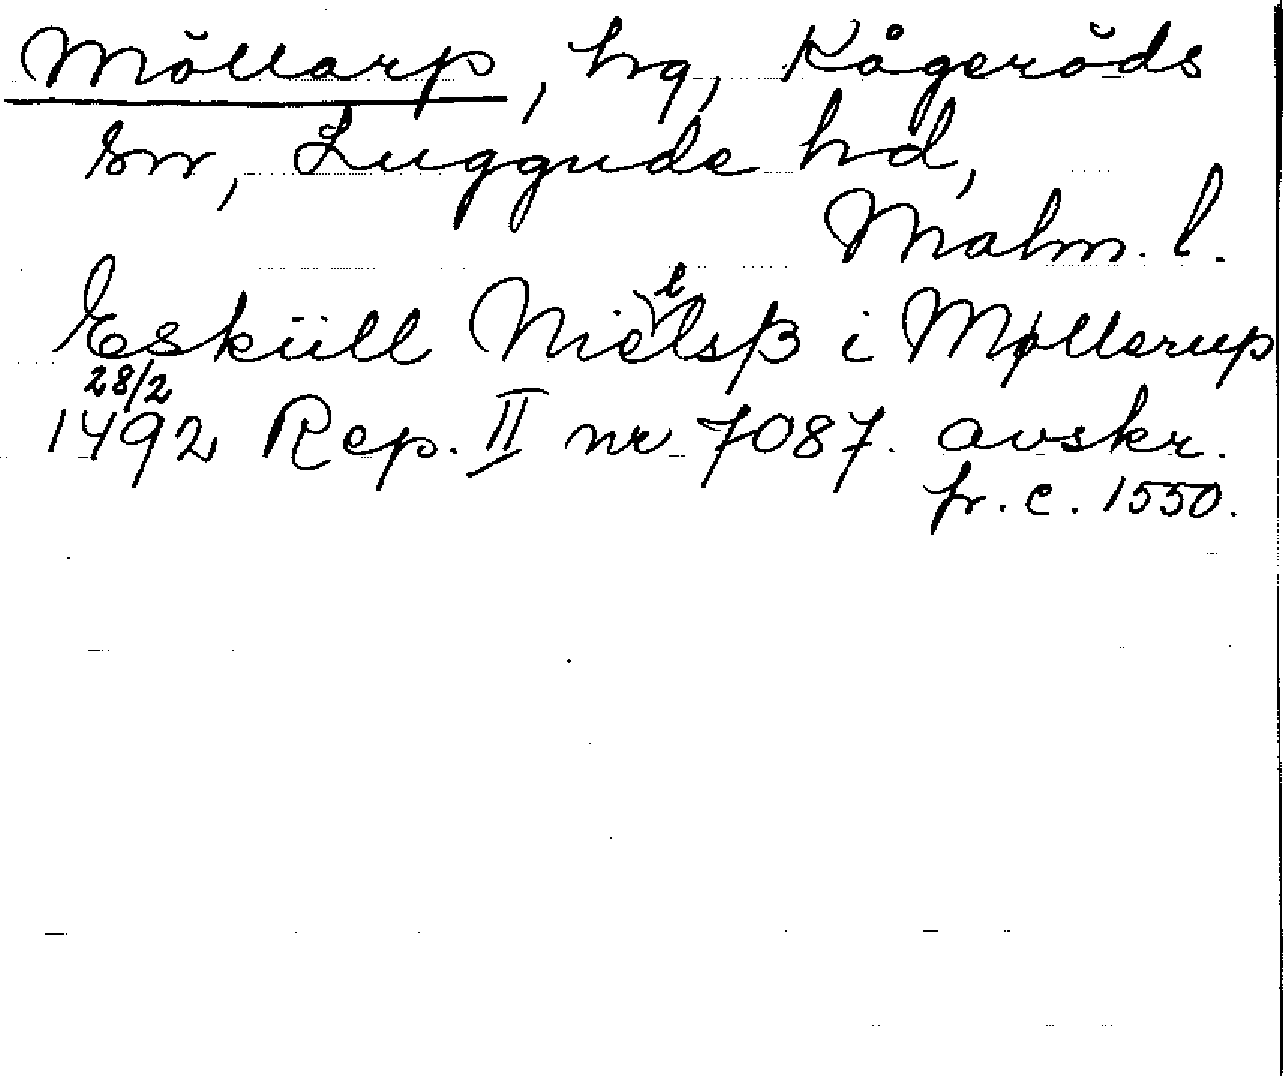 Möllarp, hg, Kågeröds
sn, Luggude hd,
Malm. l.
Esküll Nielsβ i Møllerup
28/2
1492 Rep. II nr 7087. avskr.
fr. c. 1550.